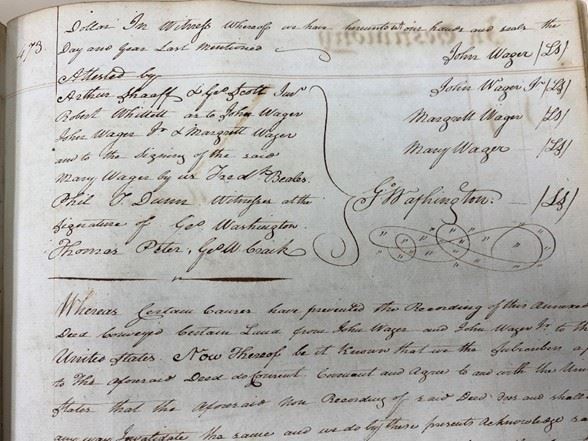 473.
Dollar In Witness Whereof we have hereunto set our hands and seals the
Day and Year Last Mentioned
John Wager /LS/
Attested by
Arthur Shaaff & Geo Scott
John Wager Jr /LS/
Robert Whittett as to John Wager
Margrett Wager /LS/
John Wager Jr & Margrett Wager
and to the signing of the said
Mary Wager /LS/
Mary Wager by us Fredk Beales.
Phil T. Dunn Witnesses at the
Go Washington. /LS/
Signature of Geo Washington.
Thomas Peter, Geo W Craik
Whereas Certain Causes have prevented the Recording of this
Deed Conveyd Certain Land from John Wager and John Wager Jr to the
United States. Now Therefore be it Known that we the Subscribers
to The Aforesaid Deed do Consent, Covenant and Agree to and with the
States that the Aforesaid Non Recording of said Deed Does and shall
any way Invalidate the same and we do by these presents Acknowledge